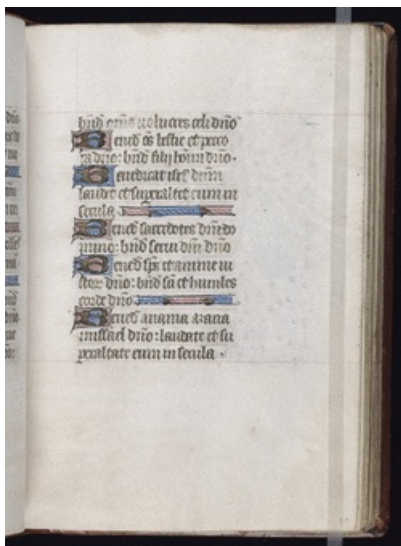 bn̄d om̄s uolucres celi dn̄o
Bened os bestie et peco
ra dn̄o: bn̄d filii homī dn̄o.
Benedicat isrl dn̄m
laudet et superaltet eum in
secula
Bened sacerdotes dn̄i do
mino: bn̄d serui dn̄i dn̄o
Bened sp̄s et anime iu
stor dn̄o: bn̄d sc̄i et humiles
corde dn̄o
Bened anania azaria
misael dn̄o: laudate et su
peraltate eum in secula .